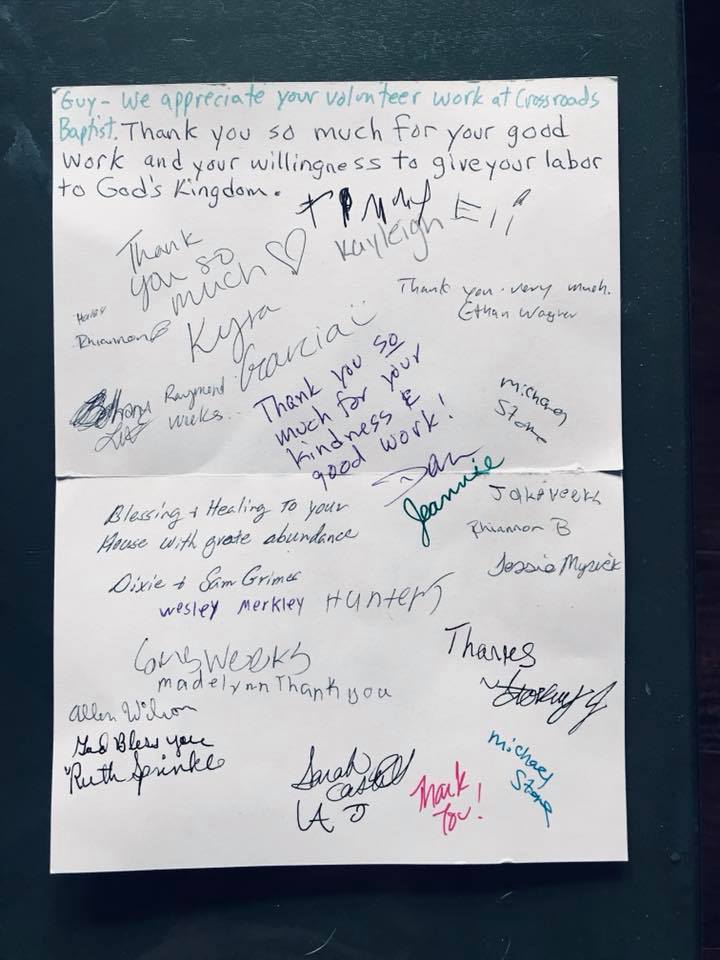 Guy - We appreciate your volunteer work at Crossroads
Baptist. Thank you so much for your good
work and your willingness to give your labor
to God's Kingdom.
Kayleigh
Thank
you so
much ♡
Thank you very much.
Ethan Wagner
Rhiannon B
Kyra
Garcia
Raymond
Weeks
Thank you so
much for your
kindness &
good work!
Michael
Stone
Jeannie
Jake Weeks
Rhiannon B
Jessie Myrick
Blessing & Healing To your
House with grate abundance
Dixie & Sam Grimes
Wesley Merkley
Hunter
Weeks
madelynn Thank you
Thanks
Allen Wilson
God Bless you
Ruth Sprinkle
Sarah
Thank
You!
Michael
Stone